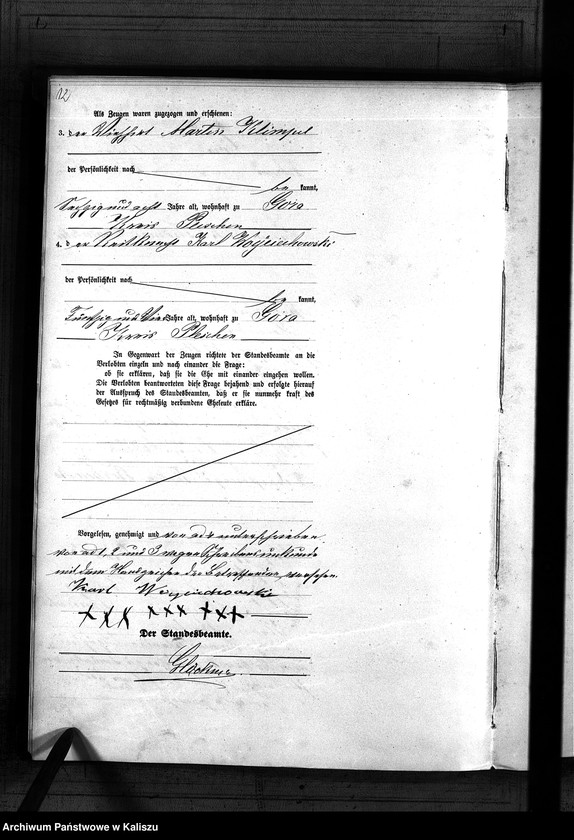 12
Als Zeugen waren zugezogen und erschienen:
3. der Martin Klimpel
der Persönlichkeit nach
be kannt,
Sechzig und acht Jahre alt, wohnhaft zu Góra
Kreis Pleschen
4. der Karl Wojciechowski
der Persönlichkeit nach
be kannt,
Fünfzig und Jahre alt, wohnhaft zu Góra
Kreis Pleschen
In Gegenwart der Zeugen richtete der Standesbeamte an die
Verlobten einzeln und nach einander die Frage:
ob sie erklären, daß sie die Ehe mit einander eingehen wollen.
Die Verlobten beantworteten diese Frage bejahend und erfolgte hierauf
der Ausspruch des Standesbeamten, daß er sie nunmehr kraft des
Gesetzes für rechtmäßig verbundene Eheleute erkläre.
Vorgelesen, genehmigt und von ad 4 unterschrieben
von ad 1, 2 und 3 wegen Schreibensunkunde
mit dem Handzeichen der versehen.
Karl Wojciechowski
XXX XXX XXX
Der Standesbeamte.
Archiwum Państwowe w Kaliszu